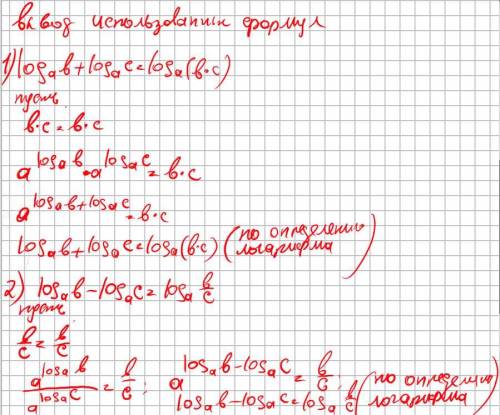 вывод использованных формул
1) logₐb + logₐc = logₐ(b·c)
пусть
b·c = b·c
a^(logₐb) · a^(logₐc) = b·c
a^(logₐb + logₐc) = b·c
logₐb + logₐc = logₐ(b·c) (по определению логарифма)
2) logₐb - logₐc = logₐ b/c
пусть
b/c = b/c
a^(logₐb) / a^(logₐc) = b/c ; a^(logₐb - logₐc) = b/c ;
logₐb - logₐc = logₐ b/c (по определению логарифма)